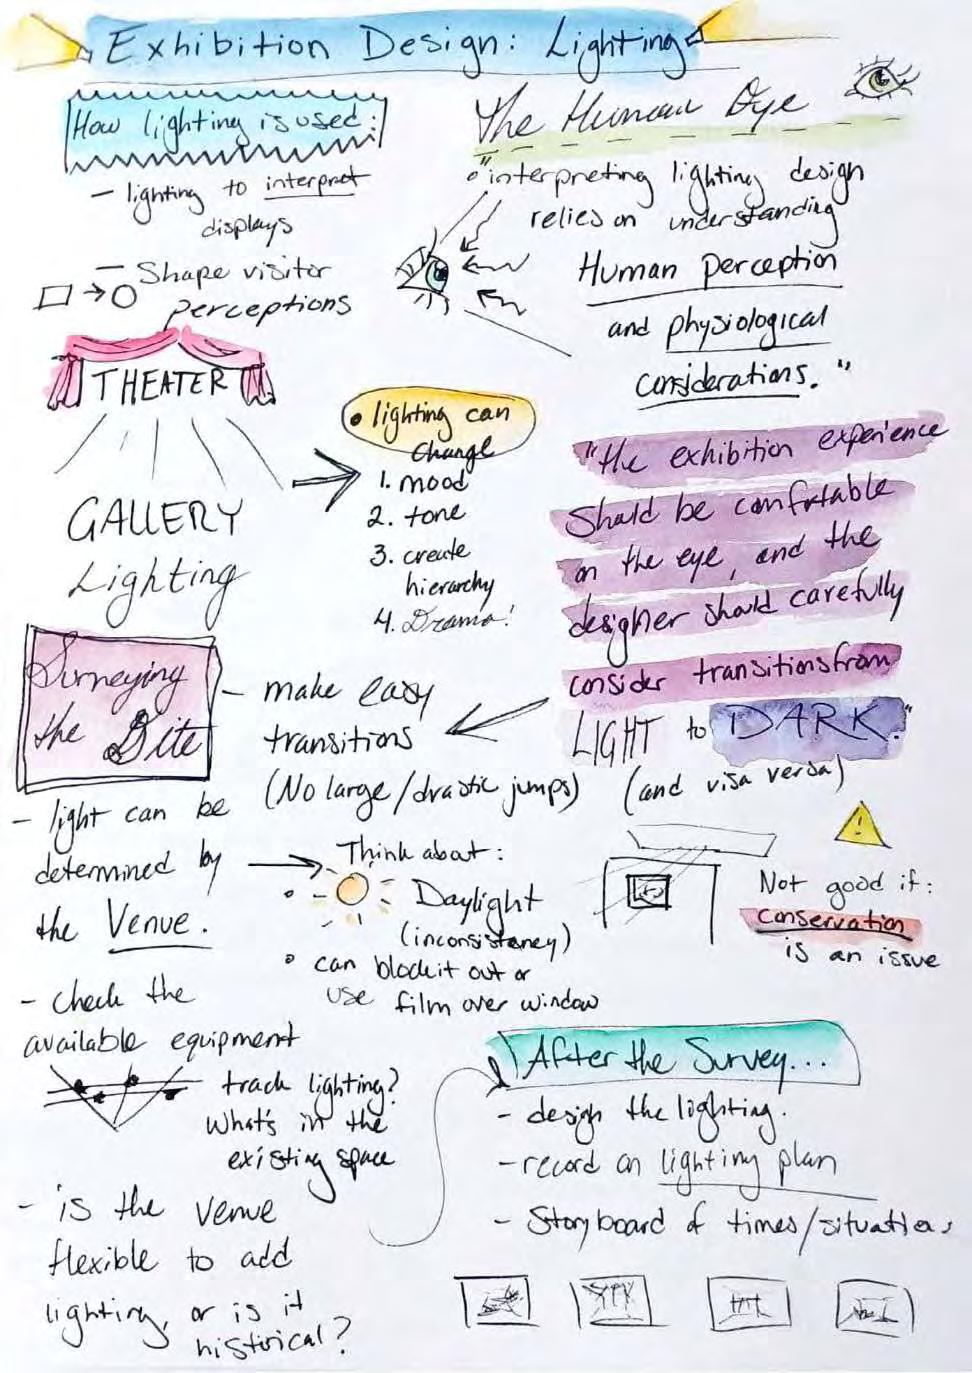 Exhibition Design: Lighting
How lighting is used:
- lighting to interpret
displays
- Shape visitor
perceptions
THEATER
GALLERY
Lighting
• lighting can
change
1. mood
2. tone
3. create
hierarchy
4. Drama!
The Human Eye
"interpreting lighting design
relies on understanding
Human perception
and physiological
considerations."
"the exhibition experience
should be comfrtable
on the eye, and the
designer should carefully
consider transitions from
LIGHT to DARK."
(and visa versa)
- make easy
transitions
(No large/drastic jumps)
Surveying
the Site
- light can be
determined by
the Venue.
Think about:
• Daylight
(inconsistency)
• can block it out or
use film over window
!
Not good if:
conservation
is an issue
- check the
available equipment
track lighting?
What's in the
existing space
- is the venue
flexible to add
lighting, or is it
historical?
After the Survey...
- design the lighting.
- record on lighting plan
- Storyboard of times/situations